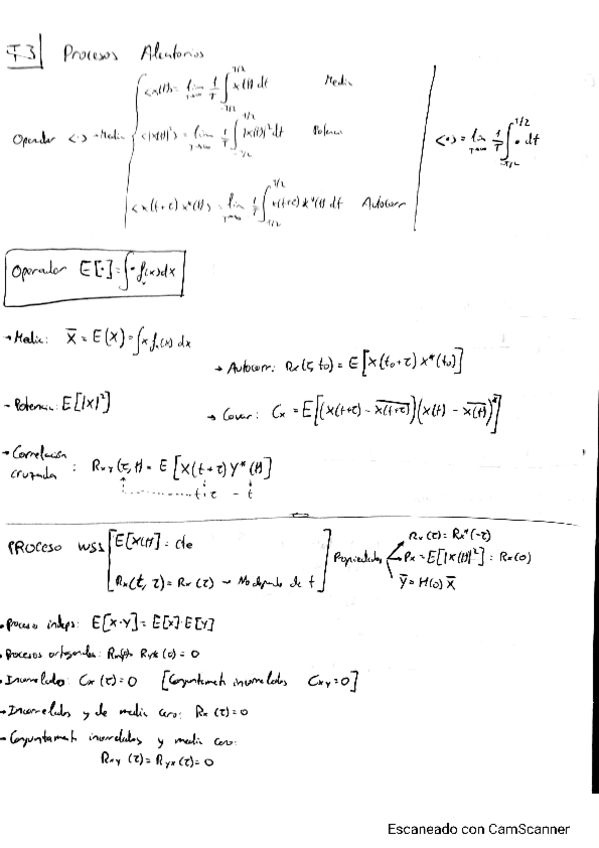 T3 Procesos Aleatorios
Operador <·> → Media
<x(t)> = lim T→∞ 1/T ∫_{-T/2}^{T/2} x(t) dt Media
<|x(t)|²> = lim T→∞ 1/T ∫_{-T/2}^{T/2} |x(t)|² dt Potencia
<x(t+τ) x*(t)> = lim T→∞ 1/T ∫_{-T/2}^{T/2} x(t+τ) x*(t) dt Autocorr
<·> = lim T→∞ 1/T ∫_{-T/2}^{T/2} · dt
Operador E[·] = ∫ · fₓ(x) dx
→ Media: X̄ = E(X) = ∫ x fₓ(x) dx
→ Autocorr: Rx(τ, t₀) = E[X(t₀+τ) X*(t₀)]
- Potencia: E[|X|²]
→ Covar: Cx = E[(X(t+τ) - X̄(t+τ)) (X(t) - X̄(t))*]
→ Correlación
cruzada : Rxy(τ, t) = E[X(t+τ) Y*(t)]
t+τ - t
PROCESO WSS
E[X(t)] = cte
Rx(t, τ) = Rx(τ) → No depende de t
Propiedades
Rx(τ) = Rx*(-τ)
Px = E[|X(t)|²] = Rx(0)
Ȳ = H(0) X̄
• Proceso indeps: E[X·Y] = E[X]·E[Y]
• Procesos ortogonales: Rxy(τ) = Ryx(τ) = 0
• Incorrelados: Cx(τ) = 0 [Conjuntament incorrelados Cxy = 0]
→ Incorrelados y de media cero: Rx(τ) = 0
- Conjuntament incorrelados y media cero:
Rxy(τ) = Ryx(τ) = 0
Escaneado con CamScanner